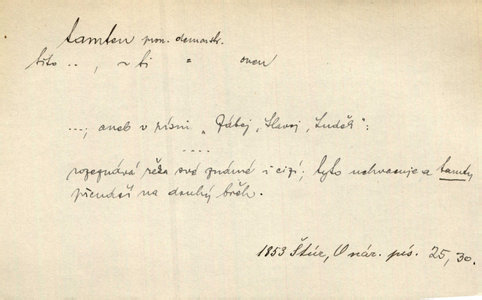 tamten pron. demonstr.
tito .. , ~ ti " onen
...; aneb v písni „Záboj, Slavoj, Luděk":
....
rozeznává řeka své známé i cizí; tyto uchvacuje a tamty
přenáší na druhý břeh.
1853 Štúr, O nár. pís. 25, 30.